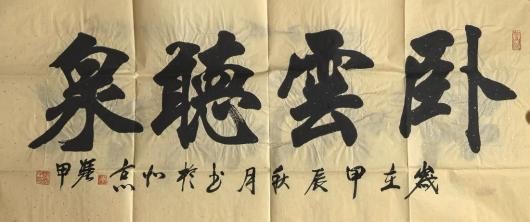 卧雲聽泉
歲在甲辰秋月書於